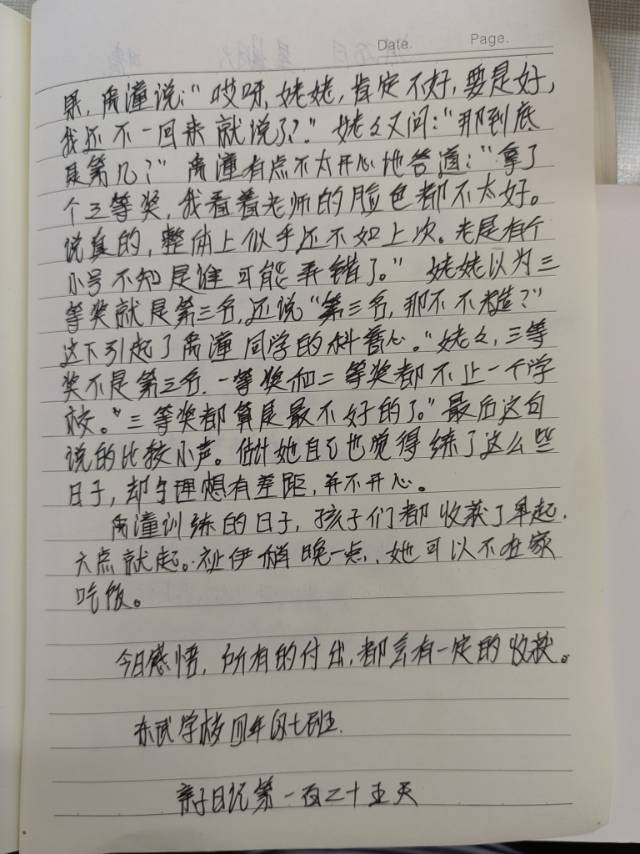 Date. Page.
果,禹潼说:“哎呀,姥姥,肯定不好,要是好,
我还不一回来就说了?”姥々又问:“那到底
是第几?”禹潼有点不太开心地答道:“拿了
个三等奖,我看着老师的脸色都不太好。
说真的,整体上似乎还不如上次。老是有个
小号不知是谁可能弄错了。”姥姥以为三
等奖就是第三名,还说“第三名,那不不糙?”
这下引起了禹潼同学的科普心。“姥々,三等
奖不是第三名.一等奖和二等奖都不止一个学
校。”三等奖都算是最不好的了。”最后这句
说的比较小声。估计她自己也觉得练了这么些
日子,却与理想有差距,并不开心。
禹潼训练的日子,孩子们都收获了早起.
六点就起。祉伊稍晚一点,她可以不在家
吃饭。
今日感悟,所有的付出,都会有一定的收获。
东武学校四年级七班.
亲子日记第一百二十五天